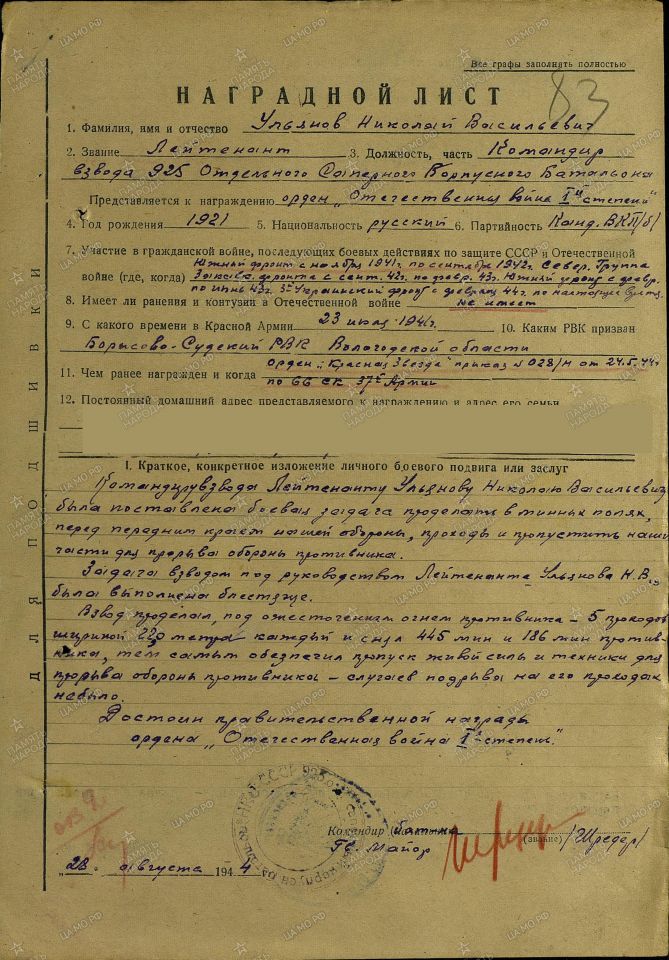 Все графы заполнять полностью
83
НАГРАДНОЙ ЛИСТ
1. Фамилия, имя и отчество Ульянов Николай Васильевич
2. Звание Лейтенант 3. Должность, часть Командир
взвода 925 Отдельного Саперного Корпусного Батальона
Представляется к награждению орден „Отечественная война Iй степени"
4. Год рождения 1921 5. Национальность русский 6. Партийность Канд. ВКП/б/
7. Участие в гражданской войне, последующих боевых действиях по защите СССР и Отечественной
Южный фронт с ноября 1941г. по сентябрь 1942г. Север. Группа
войне (где, когда) Закавк. фронта с сент. 42г. по февр. 43г. Южный фронт с февр.
по июнь 43г. 3й Украинский фронт с февраля 44г. по настоящее время
8. Имеет ли ранения и контузии в Отечественной войне не имеет
9. С какого времени в Красной Армии 23 июля 1941г. 10. Каким РВК призван
Борисово-Судский РВК Вологодской области
орден „Красная Звезда" приказ №028/н от 24.5.44г.
11. Чем ранее награжден и когда по 66 СК 37й Армии
12. Постоянный домашний адрес представляемого к награждению и адрес его семьи
ДЛЯ ПОДШИВКИ
I. Краткое, конкретное изложение личного боевого подвига или заслуг
Командиру взвода Лейтенанту Ульянову Николаю Васильевич
была поставлена боевая задача проделать в минных полях,
перед передним краем нашей обороны, проходы и пропустить наши
части для прорыва обороны противника.
Задача взводом под руководством Лейтенанта Ульянова Н.В.
была выполнена блестяще.
Взвод проделал, под ожесточенным огнем противника – 5 проходов
шириной метра каждый и снял 445 мин и 186 мин против-
ника, тем самым обеспечил пропуск живой силы и техники для
прорыва обороны противника – случаев подрыва на его проходах
небыло.
Достоин правительственной награды
ордена „Отечественная война Iй степень".
Командир
Гв. Майор (звание) /Шредер/
„28" августа 1944